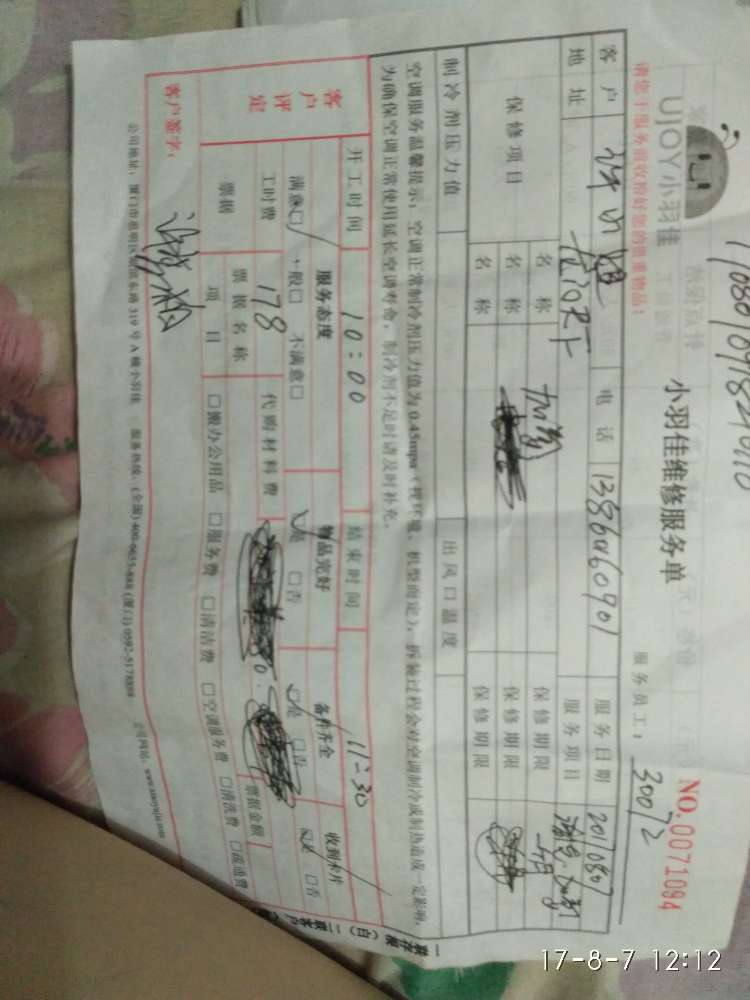 UJOY小羽佳
小羽佳维修服务单
NO.0071094
请您于服务前收拾好您的贵重物品！
服务员工：30072
客户 电话 13860160901 服务日期 20170807
地址 服务项目
保修项目 名称 加氟 保修期限
名称 保修期限
名称 保修期限
制冷剂压力值 出风口温度
空调服务温馨提示：空调正常制冷剂压力值为0.45mpa（视环境、机型而定），拆装过程会对空调制冷或制热造成一定影响，
为确保空调正常使用延长空调寿命，制冷剂不足时请及时补充。
开工时间 10:00 结束时间 11:30
客户评定 服务态度 物品完好 备件齐全 收到卡片
满意□ 一般□ 不满意□ 是 □否 是 □否 是 □否
工时费 178 代购材料费
票据 票据名称 票据金额
项目 □搬办公用品 □服务费 □清洁费 □空调服务费 □清洗费 □疏通费
客户签字：
公司地址：厦门市思明区 东路319号A楼小羽佳 服务热线：(全国)400-0655-888 (厦门)0592-5178888 公司网站：www.xmyujia.com
一联存根（白）二联客户
17-8-7 12:12